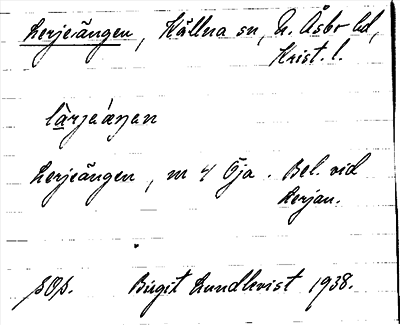 Lerjeängen, Källna sn, N. Åsbo hd,
Krist. l.
lärjeáŋen
Lerjeängen, m 4 Öja. Bel. vid
Lerjan.
Birgit Lundkvist 1938.